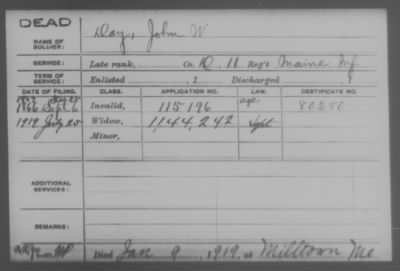 DEAD
NAME OF SOLDIER: Day, John W
SERVICE: Late rank, Co. D. 11 Reg't Maine Inf
TERM OF SERVICE: Enlisted , 1 Discharged , 1
DATE OF FILING. CLASS. APPLICATION NO. LAW. CERTIFICATE NO.
1866 Sept 6 Invalid, 115196 age 80280
1919 July 25 Widow, 1,144,242
Minor,
ADDITIONAL SERVICES:
REMARKS:
Died Jan 9, 1919, at Milltown Me